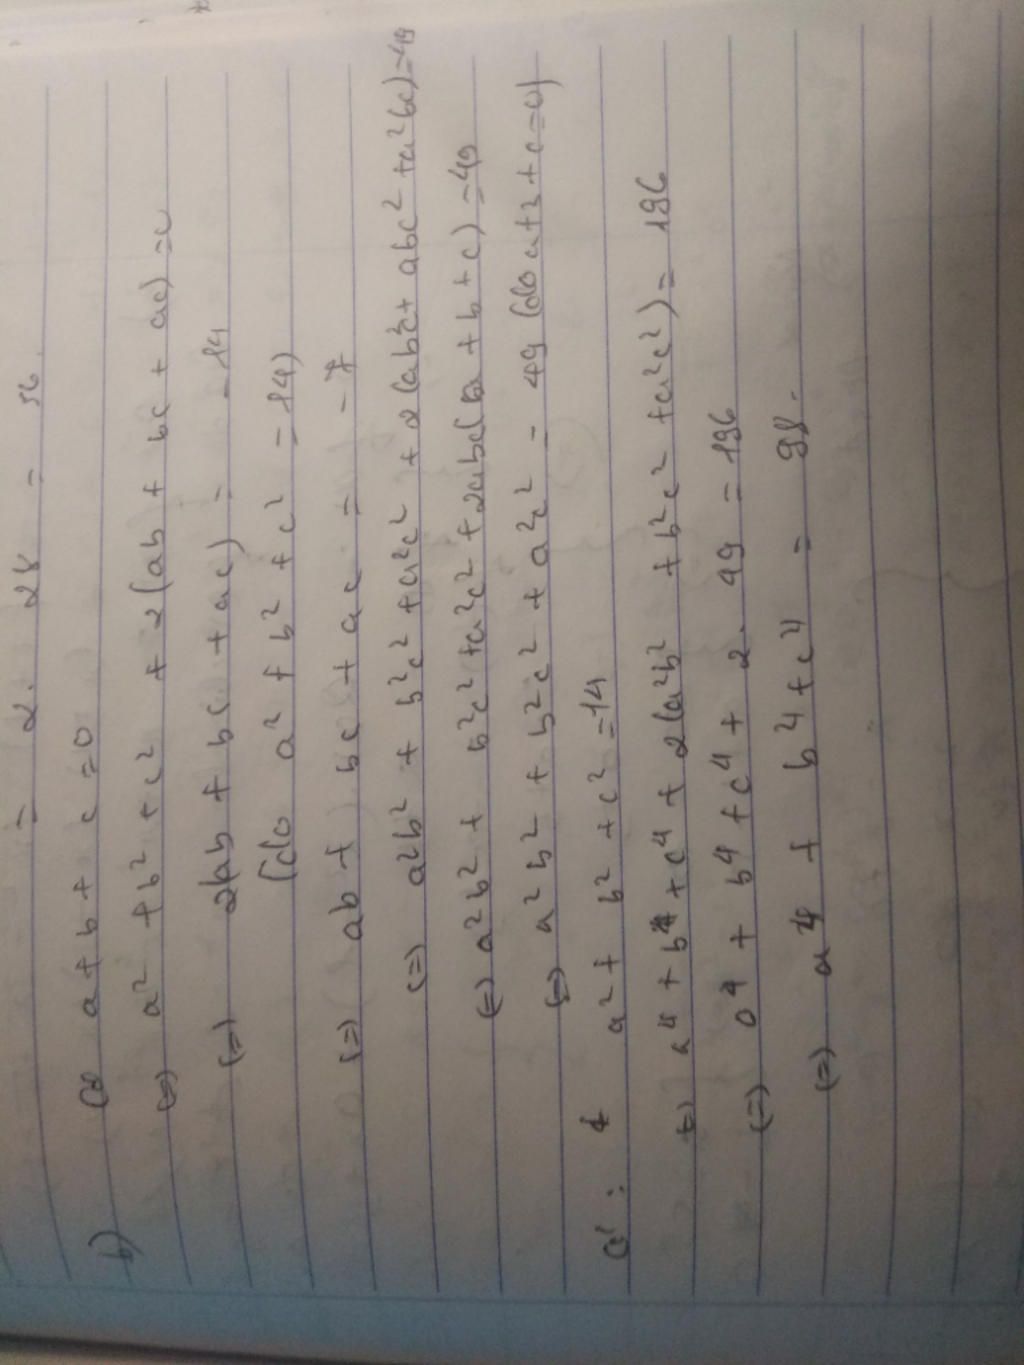 = 2. 28 = 56.
b) Có a + b + c = 0
(=) a² + b² + c² + 2(ab + bc + ac) = 0
(=) 2(ab + bc + ac) = -14
(do a² + b² + c² = 14)
(=) ab + bc + ac = -7
(=) a²b² + b²c² + a²c² + 2(ab²c + abc² + a²bc) = 49
(=) a²b² + b²c² + a²c² + 2abc(a + b + c) = 49
(=) a²b² + b²c² + a²c² = 49 (do a + b + c = 0)
a² + b² + c² = 14
(=) a⁴ + b⁴ + c⁴ + 2(a²b² + b²c² + a²c²) = 196
(=) a⁴ + b⁴ + c⁴ + 2. 49 = 196
(=) a⁴ + b⁴ + c⁴ = 98.